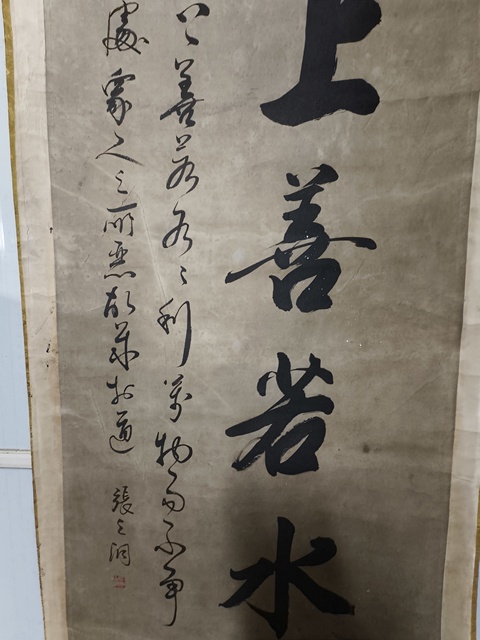 上善若水
上善若水水利萬物而不争
處眾人之所惡故幾於道
張之洞